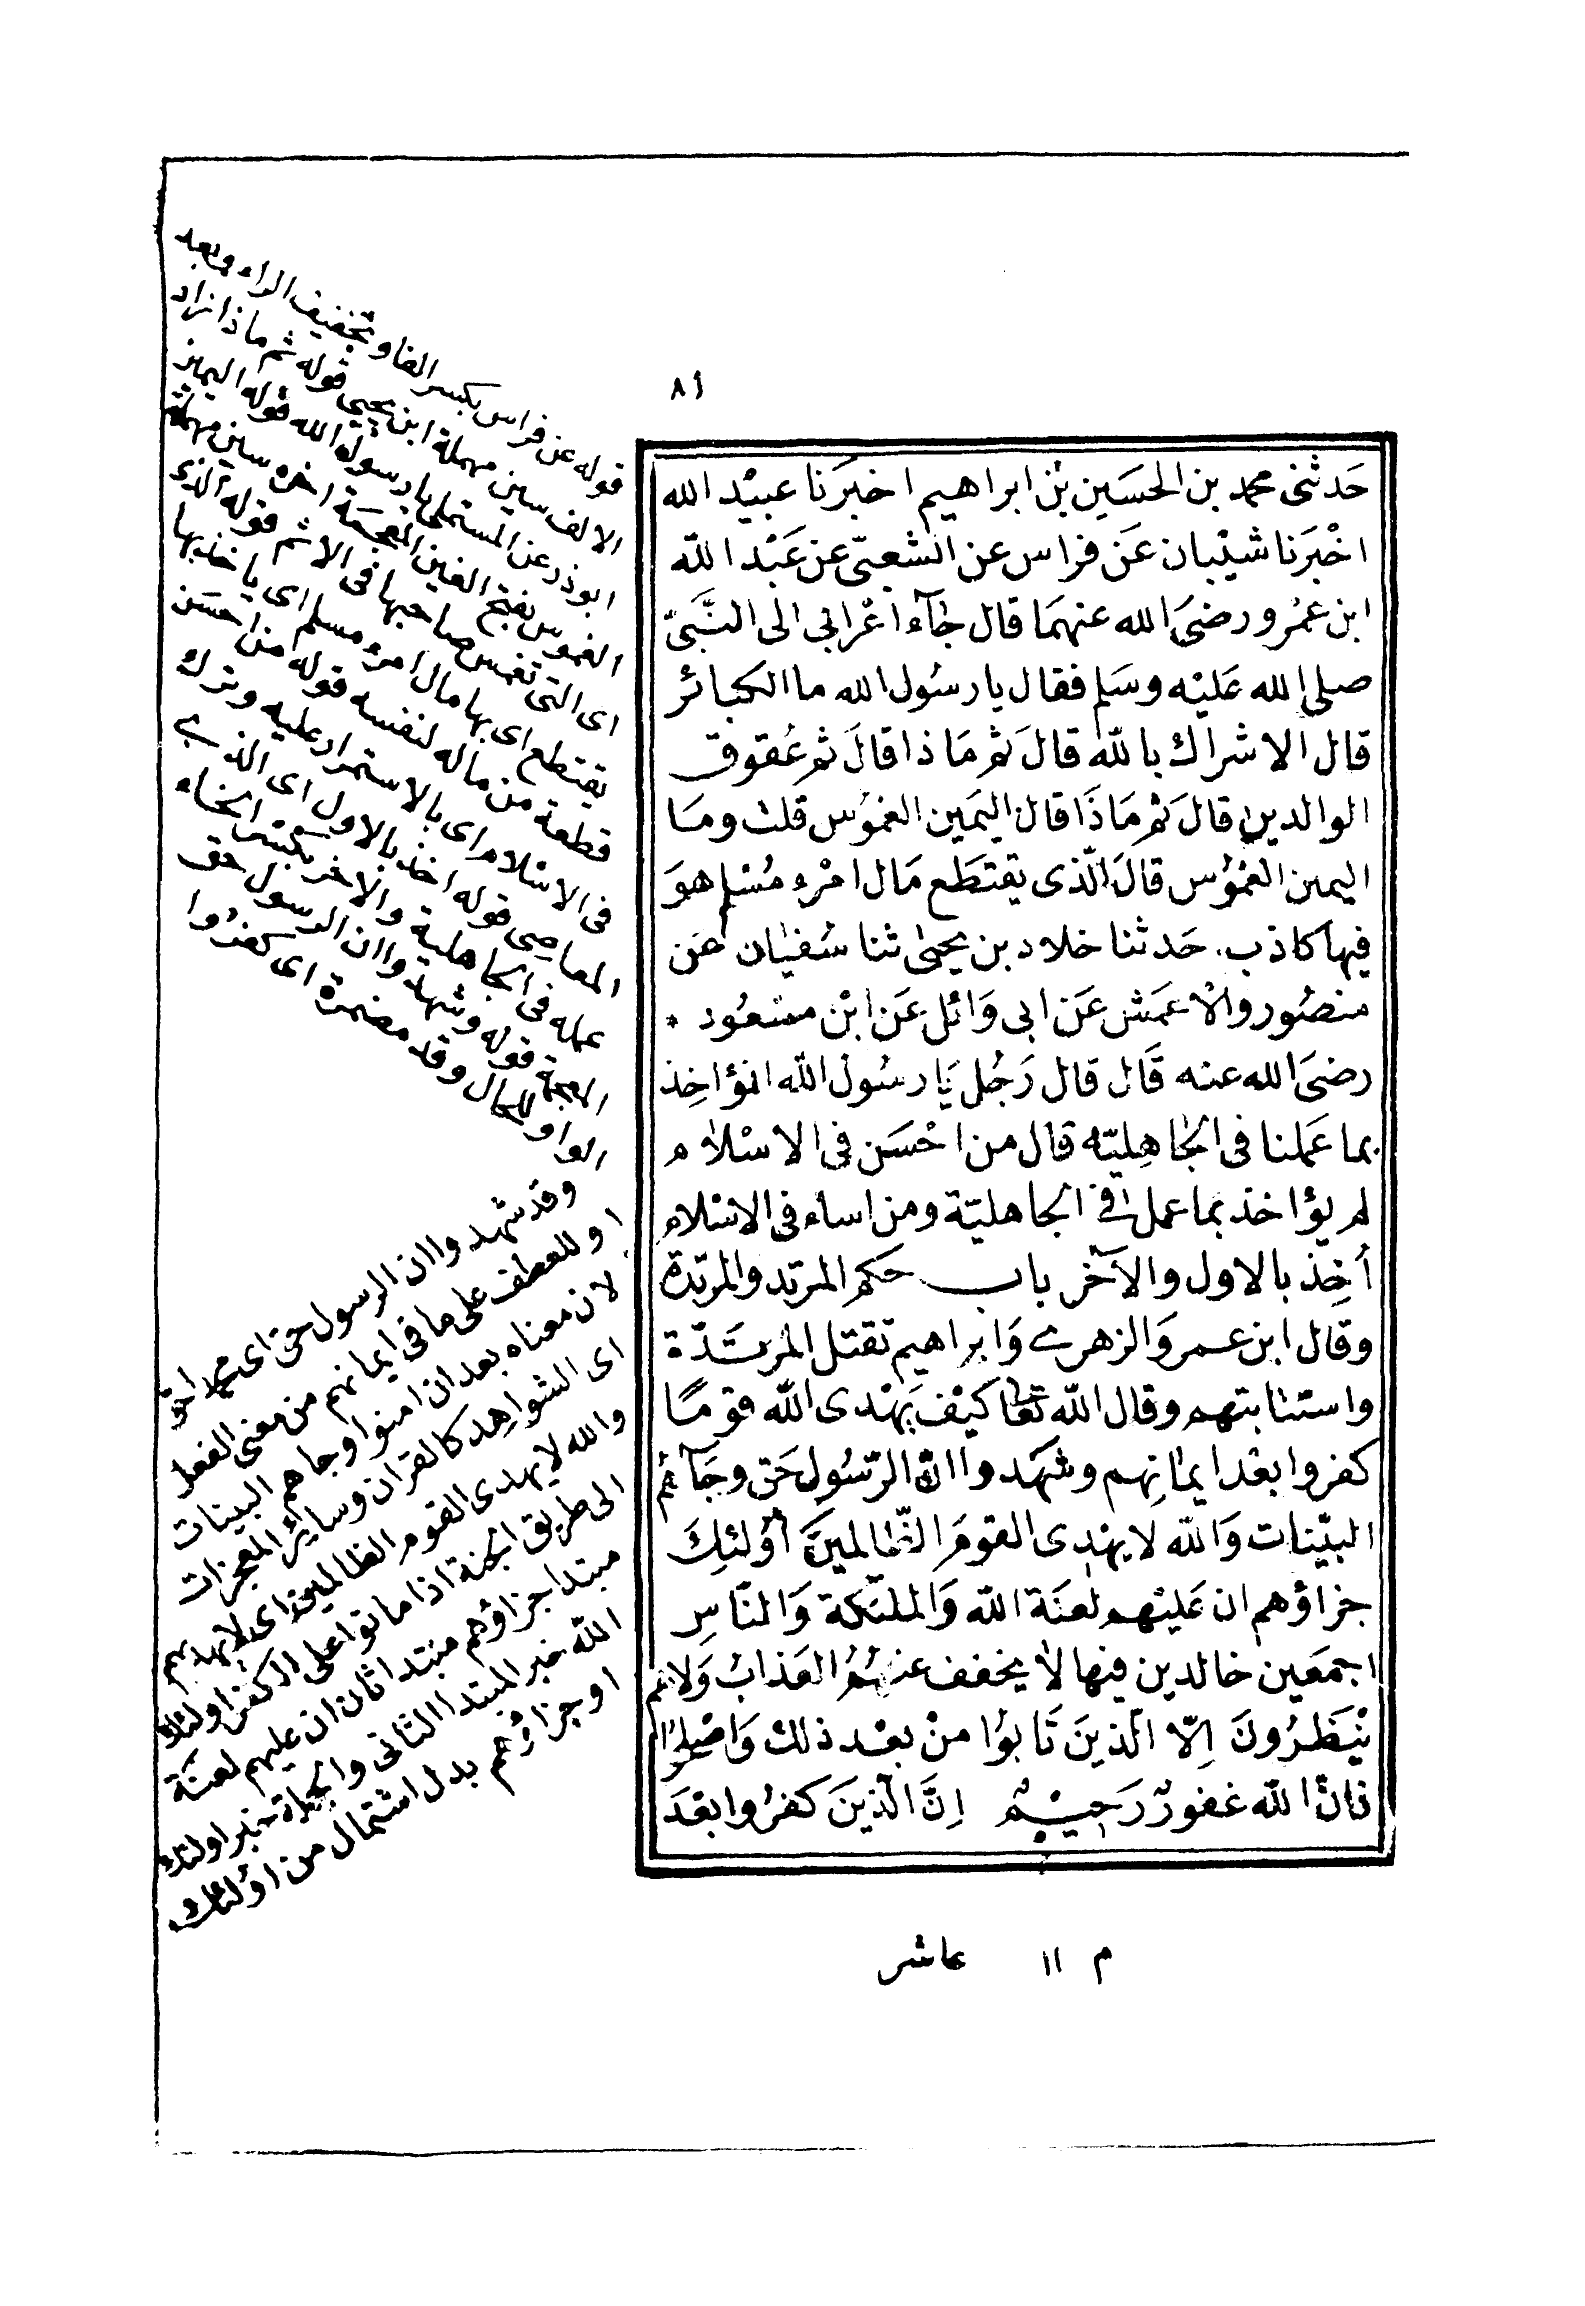 ٨١
حَدثنى محمد بن الحسَين بن ابراهيم اخبرَنا عبيْد الله
اخْبَرَنا شيْبان عَن فراس عن الشعبىّ عن عَبْد اللّه
ابن عمُرو رضىَ الله عنهمَا قال جَآء اعْرابى الى النَّبىّ
صلى الله عَليْه وسَلم فقال يا رسُول الله ما الكبائر
قال الاشراك باللّه قالَ ثم مَاذا قالَ ثم عُقوق
الوالدين قالَ ثم مَاذَا قال اليَمين الغموُس قلت ومَا
اليمين الغمُوُس قالَ الّذى يقتطَع مَال امْرء مُسْلم هوَ
فيها كاذب. حَدثنا خلاد بن يحيىٰ ثنا سُفيٰان عَن
منصُور والاعمَش عَن ابى وَائل عَن ابْن مسْعُود *
رضىَ الله عنه قَال قال رَجُل يَا رسُول اللّه انؤاخِذ
بما عَملنا فى الجٰاهِليّه قال من احْسَن فى الاسْلام
لم يؤاخذ بما عمل فى الجاهليّة ومن اساء فى الاسْلام
أخِذ بالاول والآخر باب حكم المرتد والمرتدة
وقال ابن عمر وَالزهرى وَابراهيم تقتل المرتدّة
واستتابتهم وقال اللّه تعا كيْف يَهْدى اللّه قومًا
كفروا بعْد ايمانِهم وشهَدوا انّ الرّسُول حَق وجَآءهُم
البيّنات وَاللّه لا يهْدى القومَ الظّالمينَ أوْلئِكَ
جزاؤهم ان عَليْهم لعنَة اللّه وَالملئكة وَالنّاسِ
اجمعَين خالدين فيها لا يخفف عنهُمُ العَذابُ وَلا هُم
يُنْظَرُونَ اِلّا الّذينَ تَابوُا منْ بعْد ذلك وَاصْلحوُا
فانّ اللّه غفورٌ رَحيْمٌ اِنَّ الّذينَ كفرُوا بعْدَ
قوله عن فراس بكسر الفا وتخفيف الراء وبعد
الالف سين مهملة ابن يحيى قوله ثم ماذا زاد
ابوذر عن المستملى يا رسول الله قوله اليمين
الغموس بفتح الغين المعجمة اخره سين مهملة
اى التى تغمس صاحبها فى الاثم قوله الذى
يقتطع اى بها مال امرء مسلم اى ياخذ بها
قطعة من ماله لنفسه قوله من احسَن
فى الاسْلام اى بالاستمرار عليه وترك
المعاصى قوله اخذ بالاول اى الذى
عمله فى الجاهلية والاخر بكسْر الخاء
المعجمة قوله وشهدوا ان الرسول حق
الواو للحال وقد مضمرة اى كفرُوا
وقد شهدوا ان الرسول حق اى محمدا حق
او للعطف على ما فى ايمانهم من معنى الفعل
لان معناه بعد ان امنوا وجاهم البينات
اى الشواهد كالقران وساير المعجزات
والله لا يهدى القوم الظالمين اى لا يهديهم
الى طريق الجنة اذا ماتوا على الكفر اولئك
مبتدا جزاؤهم مبتدا ثان ان عليهم لعنَة
اللّه خبر المبتدا الثانى والجملة خبر اولئك
او جزاؤهم بدل اشتمال من اوُلئك
م ١١ عاشر